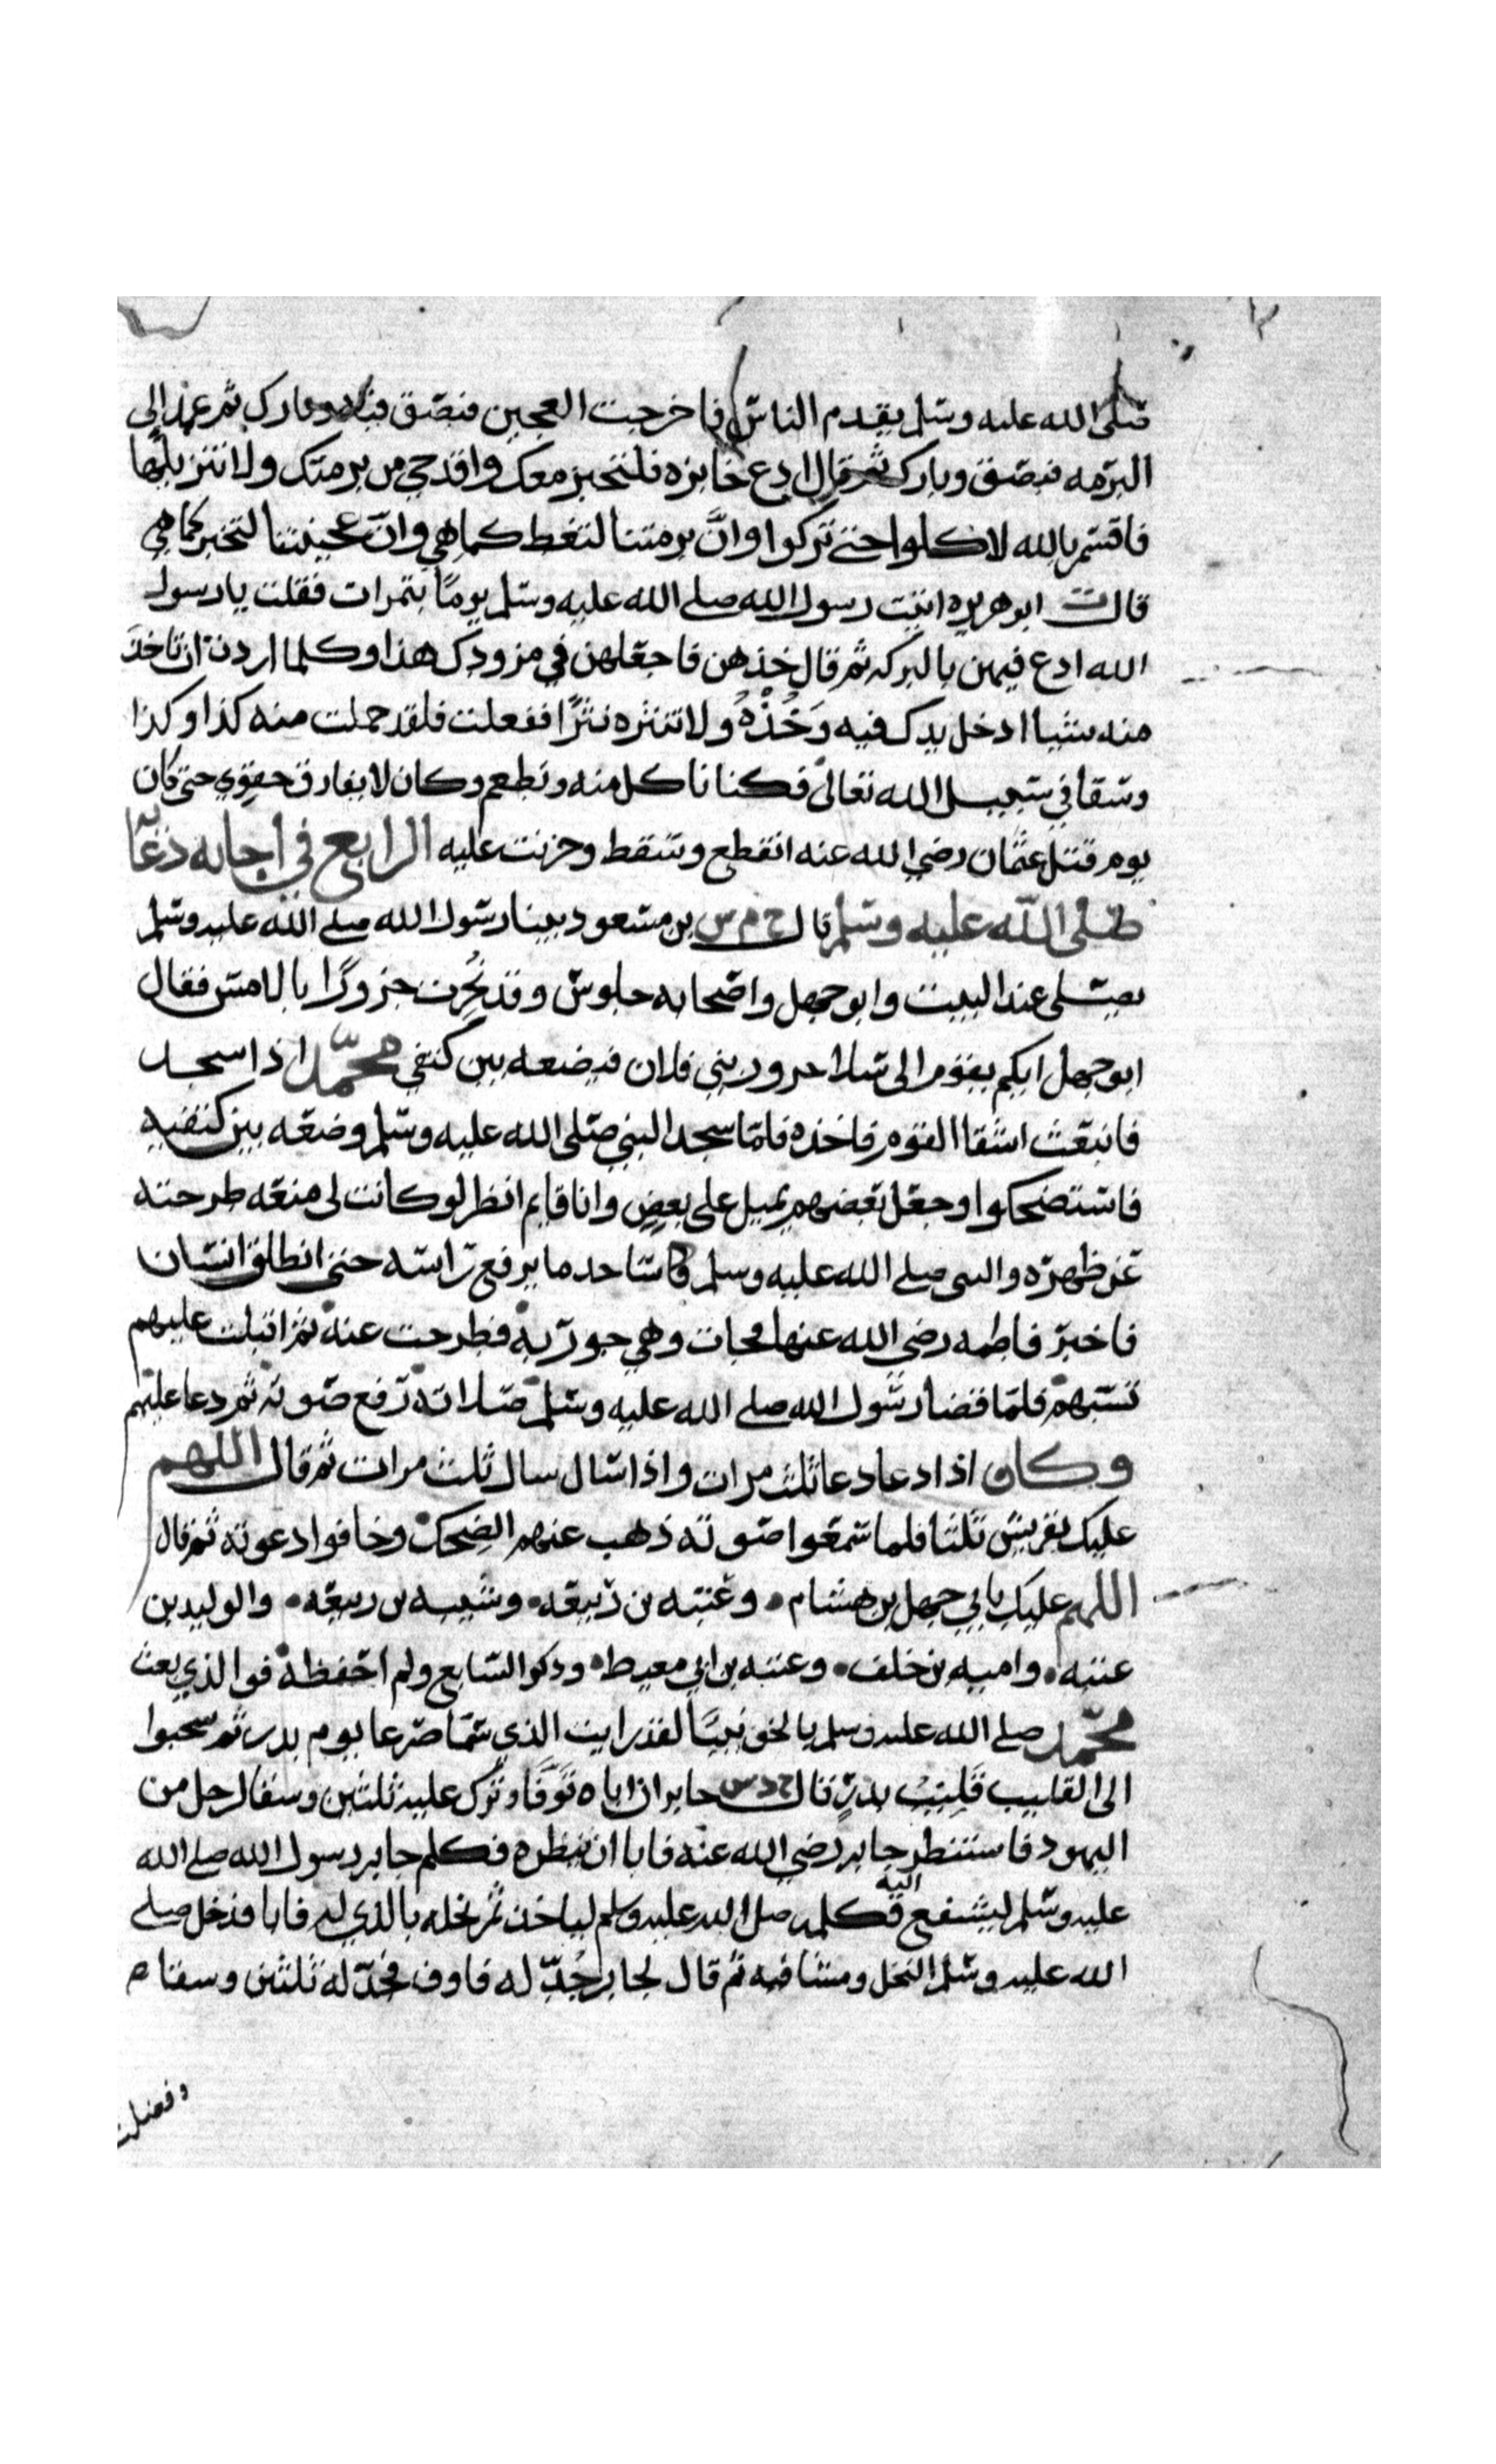 صلى الله عليه وسلم يقدم الناس فاخرجت العجين فبصق فيه وبارك ثم عمد الى
البرمه فبصق وبارك ثم قال ادع خابزه فلتخبز معك واقدحي من برمتك ولا تنزلوها
فاقسم بالله لاكلوا حتى تركوا وانَّ برمتنا لتغط كما هي وانّ عجيننا لتخبز كما هي
قالت ابو هريره اتيت رسول الله صلى الله عليه وسلم يومًا بتمرات فقلت يا رسول
الله ادع فيهن بالبركه ثم قال خذهن فاجعلهن في مزودك هذا وكلما اردت ان تاخذ
منه شيا ادخل يدك فيه وَخُذْهُ ولا تنثره نثرًا ففعلت فلقد حملت منه كذا وكذا
وسقا في سبيل الله تعالى فكنا ناكل منه ونطعم وكان لا يفارق حقوي حتى كان
يوم قتل عثمان رضي الله عنه انقطع وسقط وحزنت عليه الرابع في اجابه دعآ
صلى الله عليه وسلم قال خ م س بن مسعود بينا رسول الله صلى الله عليه وسلم
يصلى عند البيت وابو جهل واصحابه جلوس وقد نُحِرت جزورًا بالامس فقال
ابو جهل ايكم يقوم الى سلا جزور بني فلان فيضعه بين كتفي محمّد اذا سجد
فانبعث اشقا القوم فاخذه فلمّا سجد النبي صلى الله عليه وسلم وضعه بين كتفيه
فاستضحكوا وجعل بعضهم يميل على بعضٍ وانا قايم انظر لو كانت لى منعه طرحته
عن ظهره والنبي صلى الله عليه وسلم ساجد ما يرفع راسه حتى انطلق انسان
فاخبر فاطمه رضي الله عنها فجات وهي جويريه فطرحت عنه ثم اقبلت عليهم
تسبهم فلمّا قضا رسول الله صلى الله عليه وسلم صلاته رفع صوته ثم دعا عليهم
وكان اذا دعا دعا ثلث مرات واذا سال سال ثلث مرات ثم قال اللهم
عليك بقريش ثلثا فلما سمعوا صوته ذهب عنهم الضحك وخافوا دعوته ثم قال
اللهم عليك بابي جهل بن هشام • وعتبه بن ربيعه • وشيبه بن ربيعه • والوليد بن
عتبه • واميه بن خلف • وعتبه بن ابي معيط • وذكر السابع ولم احفظه فو الذي بعث
محمّد صلى الله عليه وسلم بالحق نبيًا لقد رايت الذي سمّا صرعا يوم بدر ثم سحبوا
الى القليب قَلِيْبِ بدرٍ قال خ د س جابر ان اباه تَوَفَّا وترك عليه ثلثين وسقا لرجل من
اليهود فاستنظر جابر رضي الله عنه فابا ان ينظره فكلم جابر رسول الله صلى الله
عليه وسلم ليشفع اليه فكلمه صلى الله عليه وسلم لياخذ ثمر نخله بالذي له فابا فدخل صلى
الله عليه وسلم النخل ومشا فيه ثم قال لجابر جُدّ له فاوف فجدّ له ثلثين وسقا
وفضلت